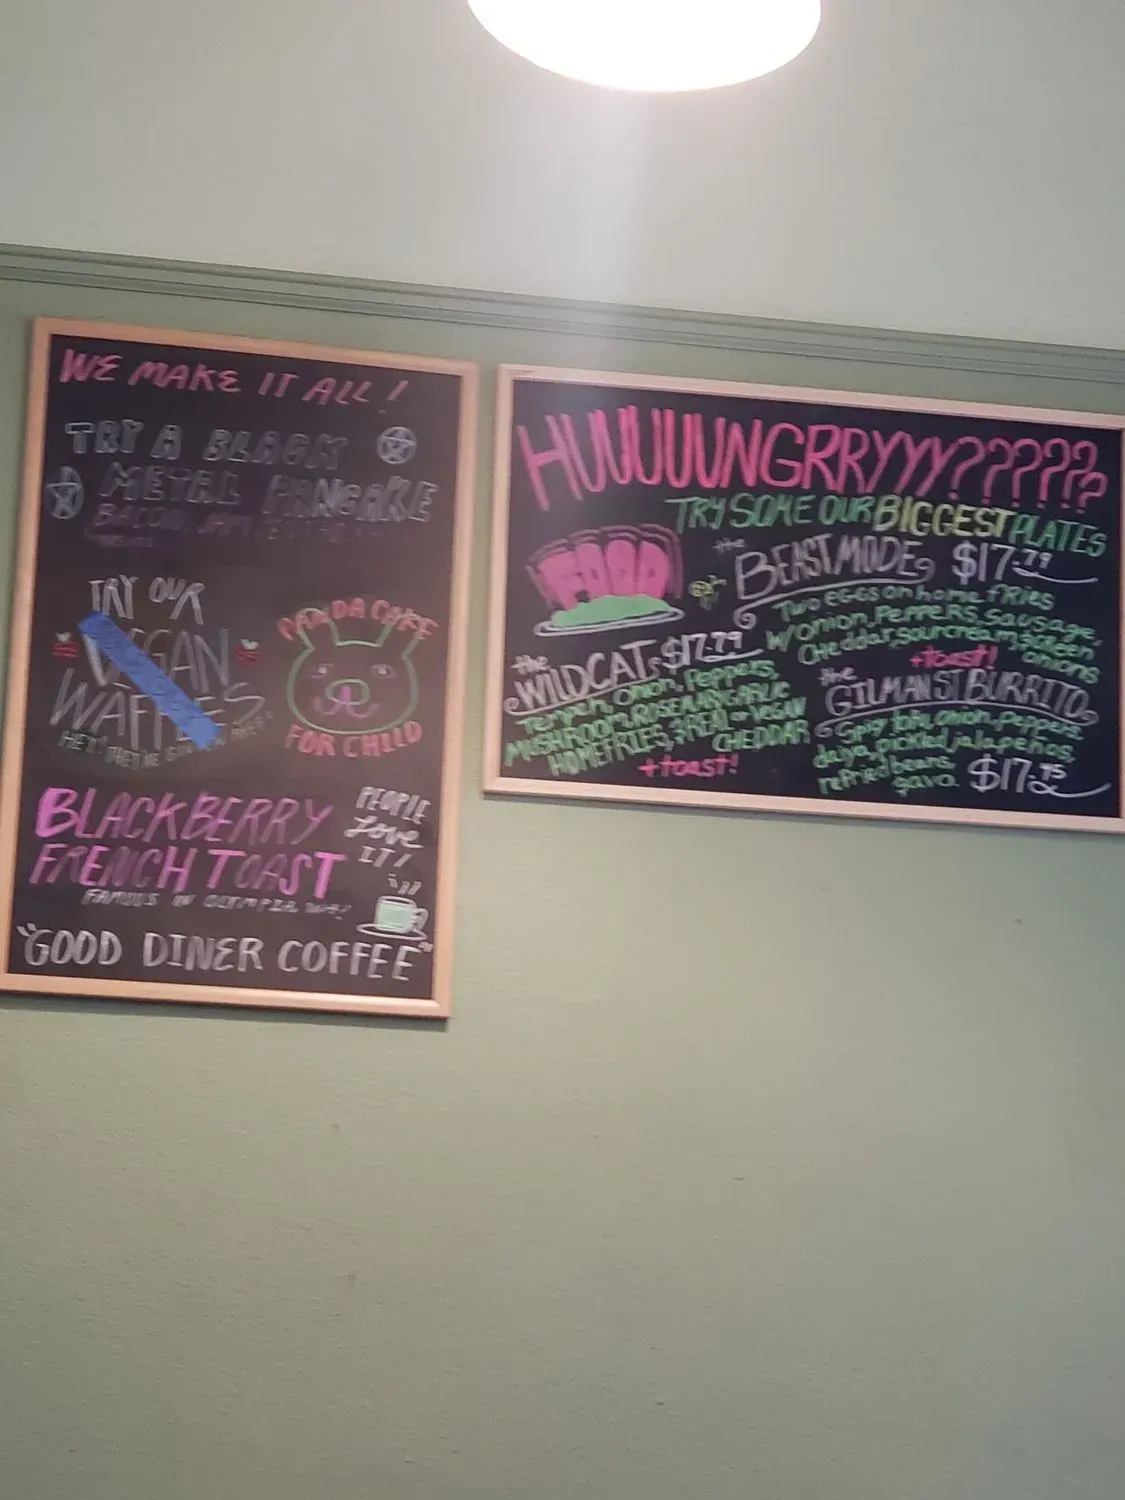 WE MAKE IT ALL!
TRY A BLACK
METAL PANCAKE
BACON, JAM
TRY OUR
VEGAN
WAFFLES
HEY! THEY'RE
PANDA CAKE
FOR CHILD
BLACKBERRY
FRENCH TOAST
FAMOUS IN OLYMPIA,
PEOPLE
LOVE
IT!
"GOOD DINER COFFEE"
HUUUUUNGRRYYYY?????
TRY SOME OUR BIGGEST PLATES
FOOD
the
BEAST MODE $17.79
Two EGGS on home fries
w/onion, PEPPERS, Sausage,
Cheddar, sourcream & green
onions
+toast!
the
WILDCAT $17.79
onion, Peppers,
MUSHROOM, ROSEMARY, GARLIC
HOMEFRIES, & REAL or VEGAN
CHEDDAR
+toast!
the
GILMAN ST BURRITO
onion, peppers,
daiya, pickled jalapeños,
refried beans
$17.95